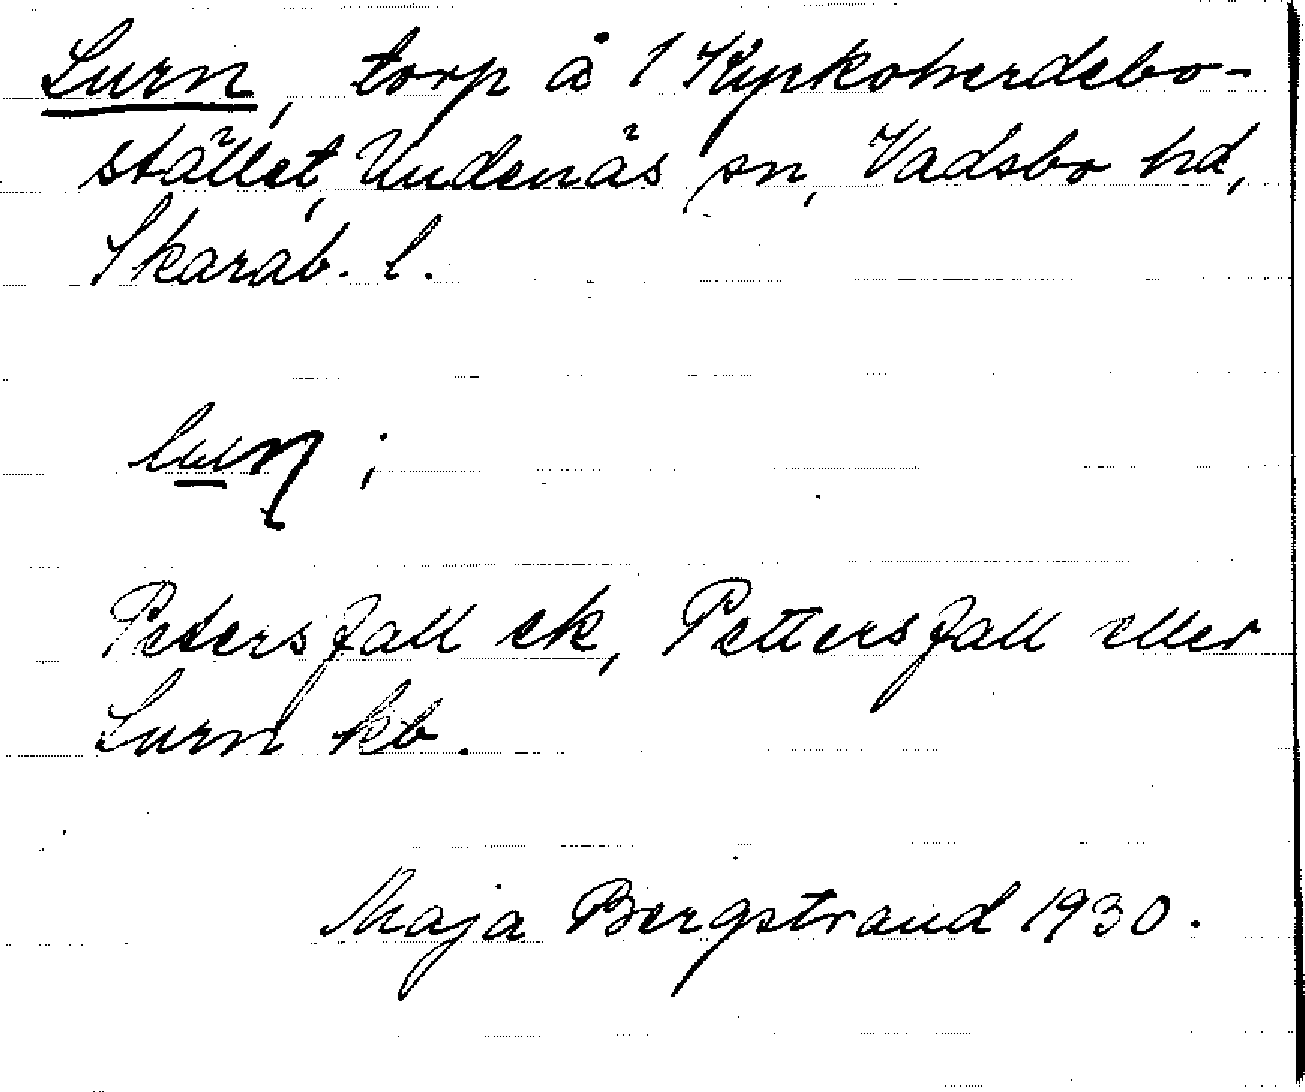 Lurn, torp å 1 Kyrkoherdebo-
stället, Undenäs sn, Vadsbo hd,
Skarab. l.
Petersfall ek, Pettersfall eller
Lurn kb.
Maja Bergstrand 1930.